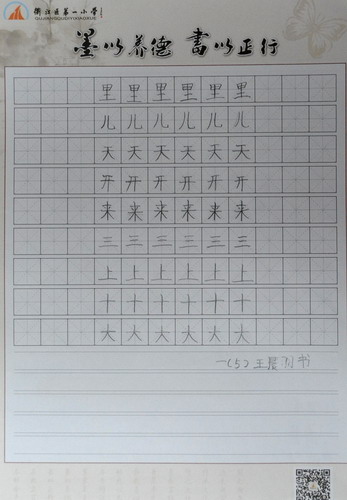 第一小学
墨以养德 書以正行
里里里里里里
儿儿儿儿儿儿
天天天天天天
开开开开开开
来来来来来来
三三三三三三
上上上上上上
十十十十十十
大大大大大大
一(5)王 书